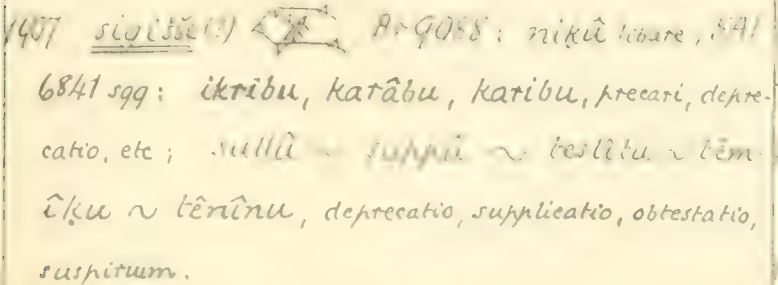 1407 sigišše (?) Br 9088: niḳû libare, SAI
6841 sqq: ikrîbu, karâbu, karibu, precari, depre-
catio, etc; sullû ~ suppû ~ teslîtu ~ têm-
îḳu ~ tênînu, deprecatio, supplicatio, obtestatio,
suspirium.